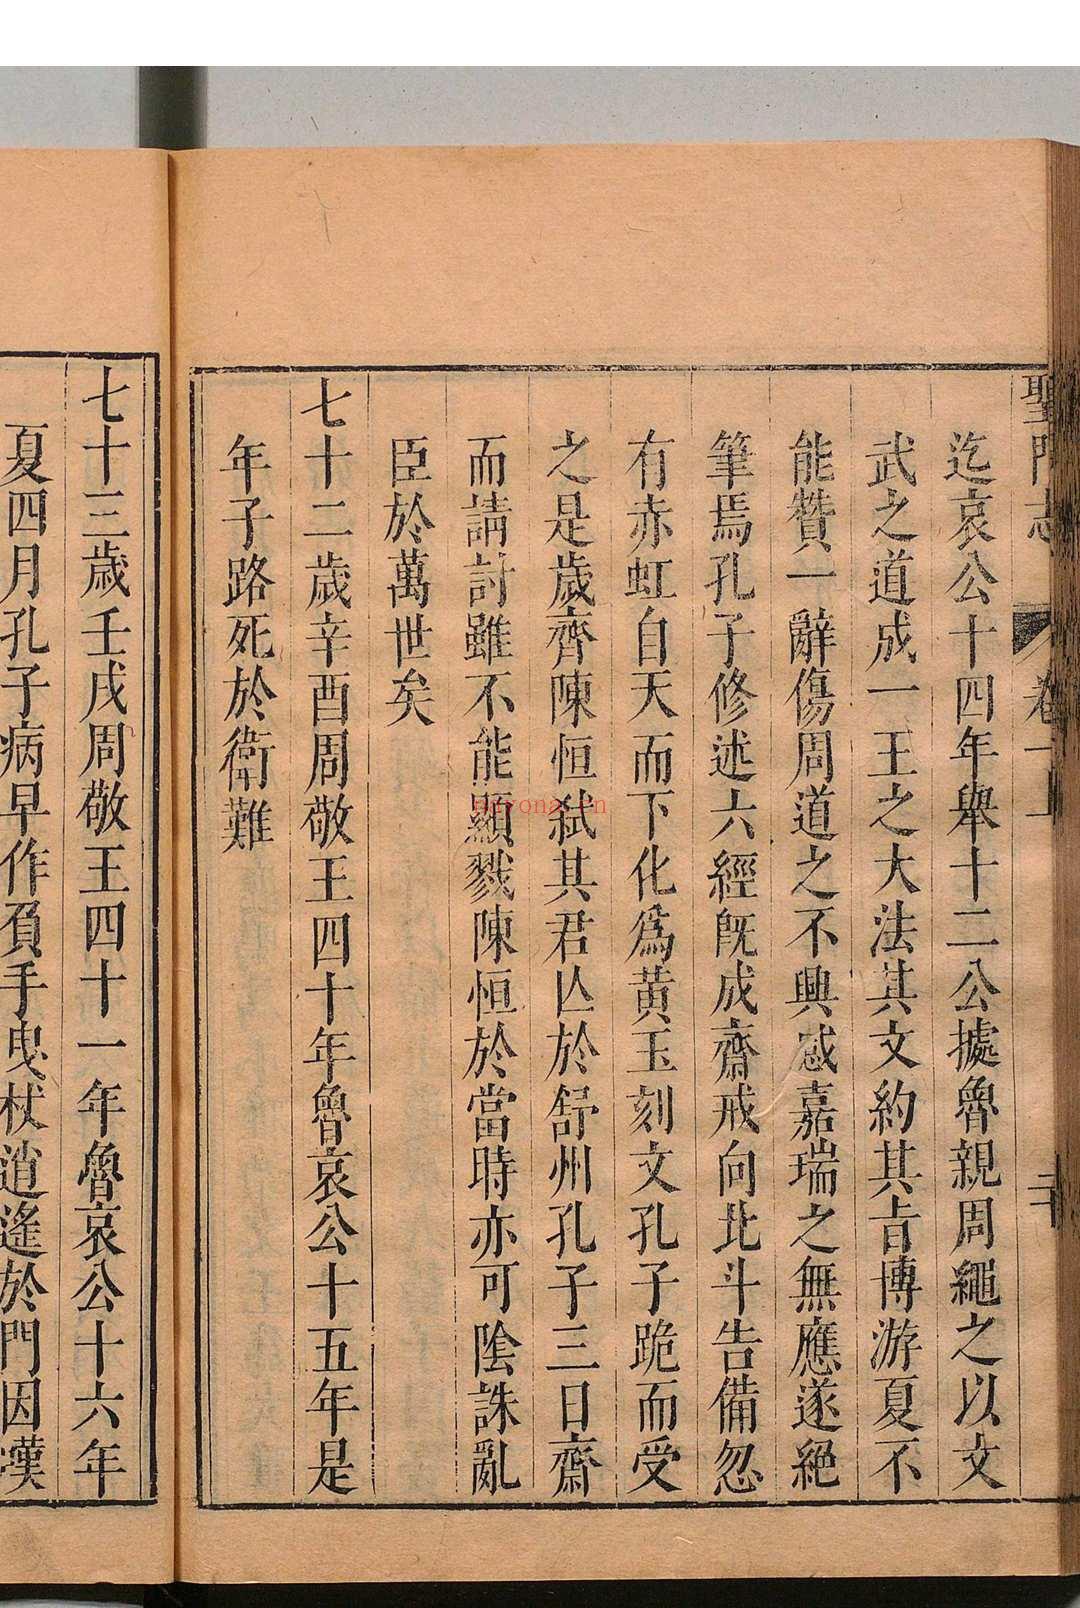 聖門志 卷一上 二十
迄哀公十四年舉十二公據魯親周繩之以文
武之道成一王之大法其文約其㫖博游夏不
能贊一辭傷周道之不興感嘉瑞之無應遂絕
筆焉孔子修述六經旣成齋戒向北斗告備忽
有赤虹自天而下化爲黃玉刻文孔子跪而受
之是歲齊陳恒弒其君亾於舒州孔子三日齋
而請討雖不能顯戮陳恒於當時亦可陰誅亂
臣於萬世矣
七十二歲辛酉周敬王四十年魯哀公十五年是
年子路死於衛難
七十三歲壬戌周敬王四十一年魯哀公十六年
夏四月孔子病早作負手曳杖逍遙於門因嘆